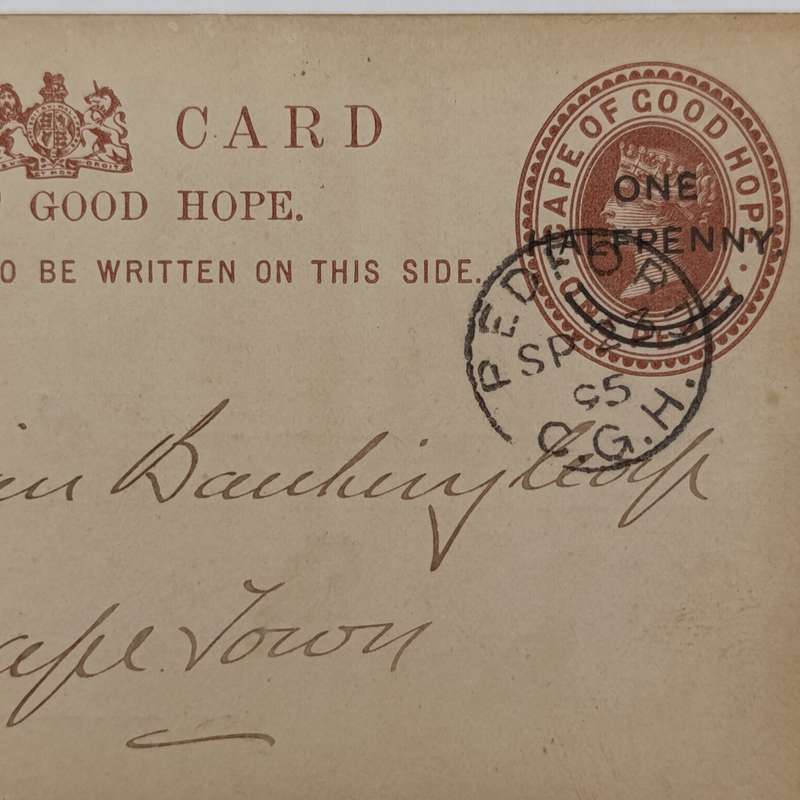 CARD
GOOD HOPE.
O BE WRITTEN ON THIS SIDE.
CAPE OF GOOD HOPE.
ONE PENNY
ONE
HALFPENNY
PEDI
SP
95
C.G.H.
Banking Corp
Cape Town